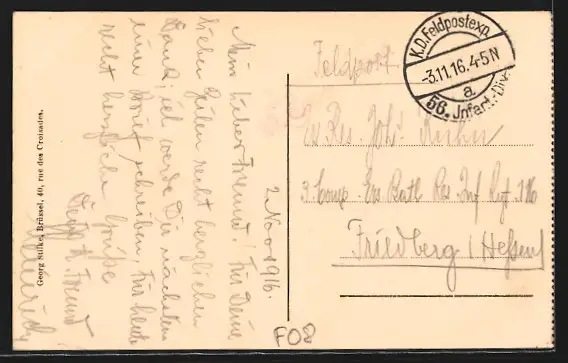 2 Nov 1916.
Mein lieber Freund! Für Deine
lieben Zeilen recht herzlichen
Dank, ich werde Dir nächstens
einen Brief schreiben, für heute
recht herzliche Grüße
Freund
Heinrich
Georg Stilke, Brüssel, 40, rue des Croisades.
Feldpost
K.D. Feldpostexp.
-3.11.16. 4-5 N
a
56. Infant.-Div.
Ers Res. Joh. Kuhn
3 Comp. Ers Batl Res Inf Rgt 116
Friedberg (Hessen)
F08